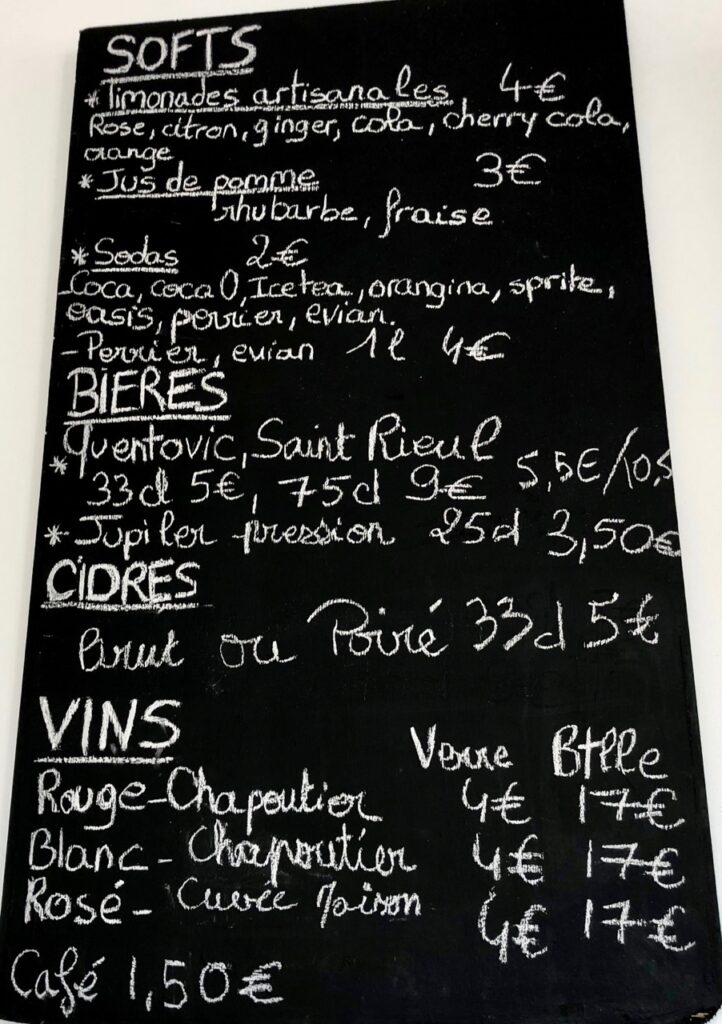 SOFTS
* Limonades artisanales 4€
Rose, citron, ginger, cola, cherry cola,
orange
* Jus de pomme 3€
rhubarbe, fraise
* Sodas 2€
- Coca, coca 0, Icetea, orangina, sprite,
oasis, perrier, evian.
- Perrier, evian 1l 4€
BIERES
* Quentovic, Saint Rieul
33cl 5€, 75cl 9€ 5,5€/10,5
* Jupiler pression 25cl 3,50€
CIDRES
Brut ou Poiré 33cl 5€
VINS
Verre Btlle
Rouge - Chapoutier 4€ 17€
Blanc - Chapoutier 4€ 17€
Rosé - Cuvée Maison 4€ 17€
Café 1,50€